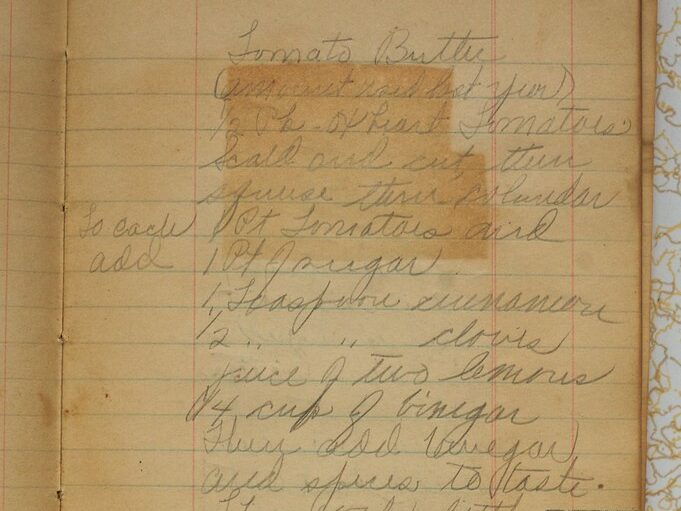 Tomato Butter
(amount used last year)
1/2 Pk. Ox heart Tomatoes
Scald and cut, then
squeese thru colandar
To each 1 Pt Tomatoes and
add 1 Pt of sugar
1 Teaspoon cinnamon
1/2 " " cloves
juice of two lemons
(1/4 cup of vinegar
then add vinegar)
and spices to taste.